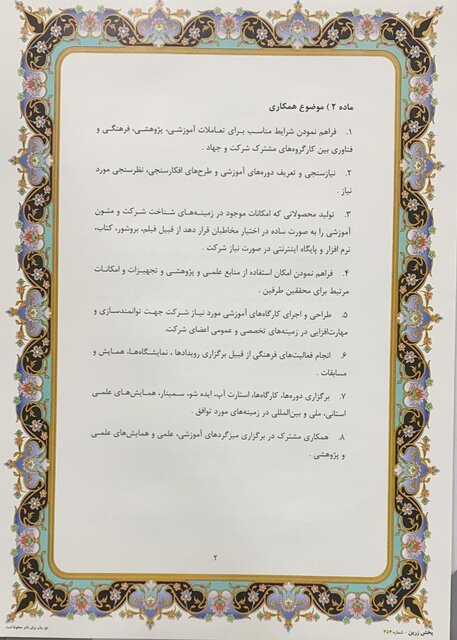 ماده ۲ ) موضوع همکاری
۱. فراهم نمودن شرایط مناسب برای تعاملات آموزشی، پژوهشی، فرهنگی و
فناوری بین کارگروه‌های مشترک شرکت و جهاد .
۲. نیازسنجی و تعریف دوره‌های آموزشی و طرح‌های افکارسنجی، نظرسنجی مورد
نیاز .
۳. تولید محصولاتی که امکانات موجود در زمینه‌های شناخت شرکت و متون
آموزشی را به صورت ساده در اختیار مخاطبان قرار دهد از قبیل فیلم، بروشور، کتاب،
نرم افزار و پایگاه اینترنتی در صورت نیاز شرکت .
۴. فراهم نمودن امکان استفاده از منابع علمی و پژوهشی و تجهیزات و امکانات
مرتبط برای محققین طرفین .
۵. طراحی و اجرای کارگاه‌های آموزشی مورد نیاز شرکت جهت توانمندسازی و
مهارت‌افزایی در زمینه‌های تخصصی و عمومی اعضای شرکت.
۶. انجام فعالیت‌های فرهنگی از قبیل برگزاری رویدادها ، نمایشگاه‌ها، همایش و
مسابقات .
۷. برگزاری دوره‌ها، کارگاه‌ها، استارت آپ، ایده شو، سمینار، همایش‌های علمی
استانی، ملی و بین‌المللی در زمینه‌های مورد توافق .
۸. همکاری مشترک در برگزاری میزگردهای آموزشی، علمی و همایش‌های علمی
و پژوهشی .
۲
پخش زرین - شماره ۳۵۲
حق چاپ برای ناشر محفوظ است.